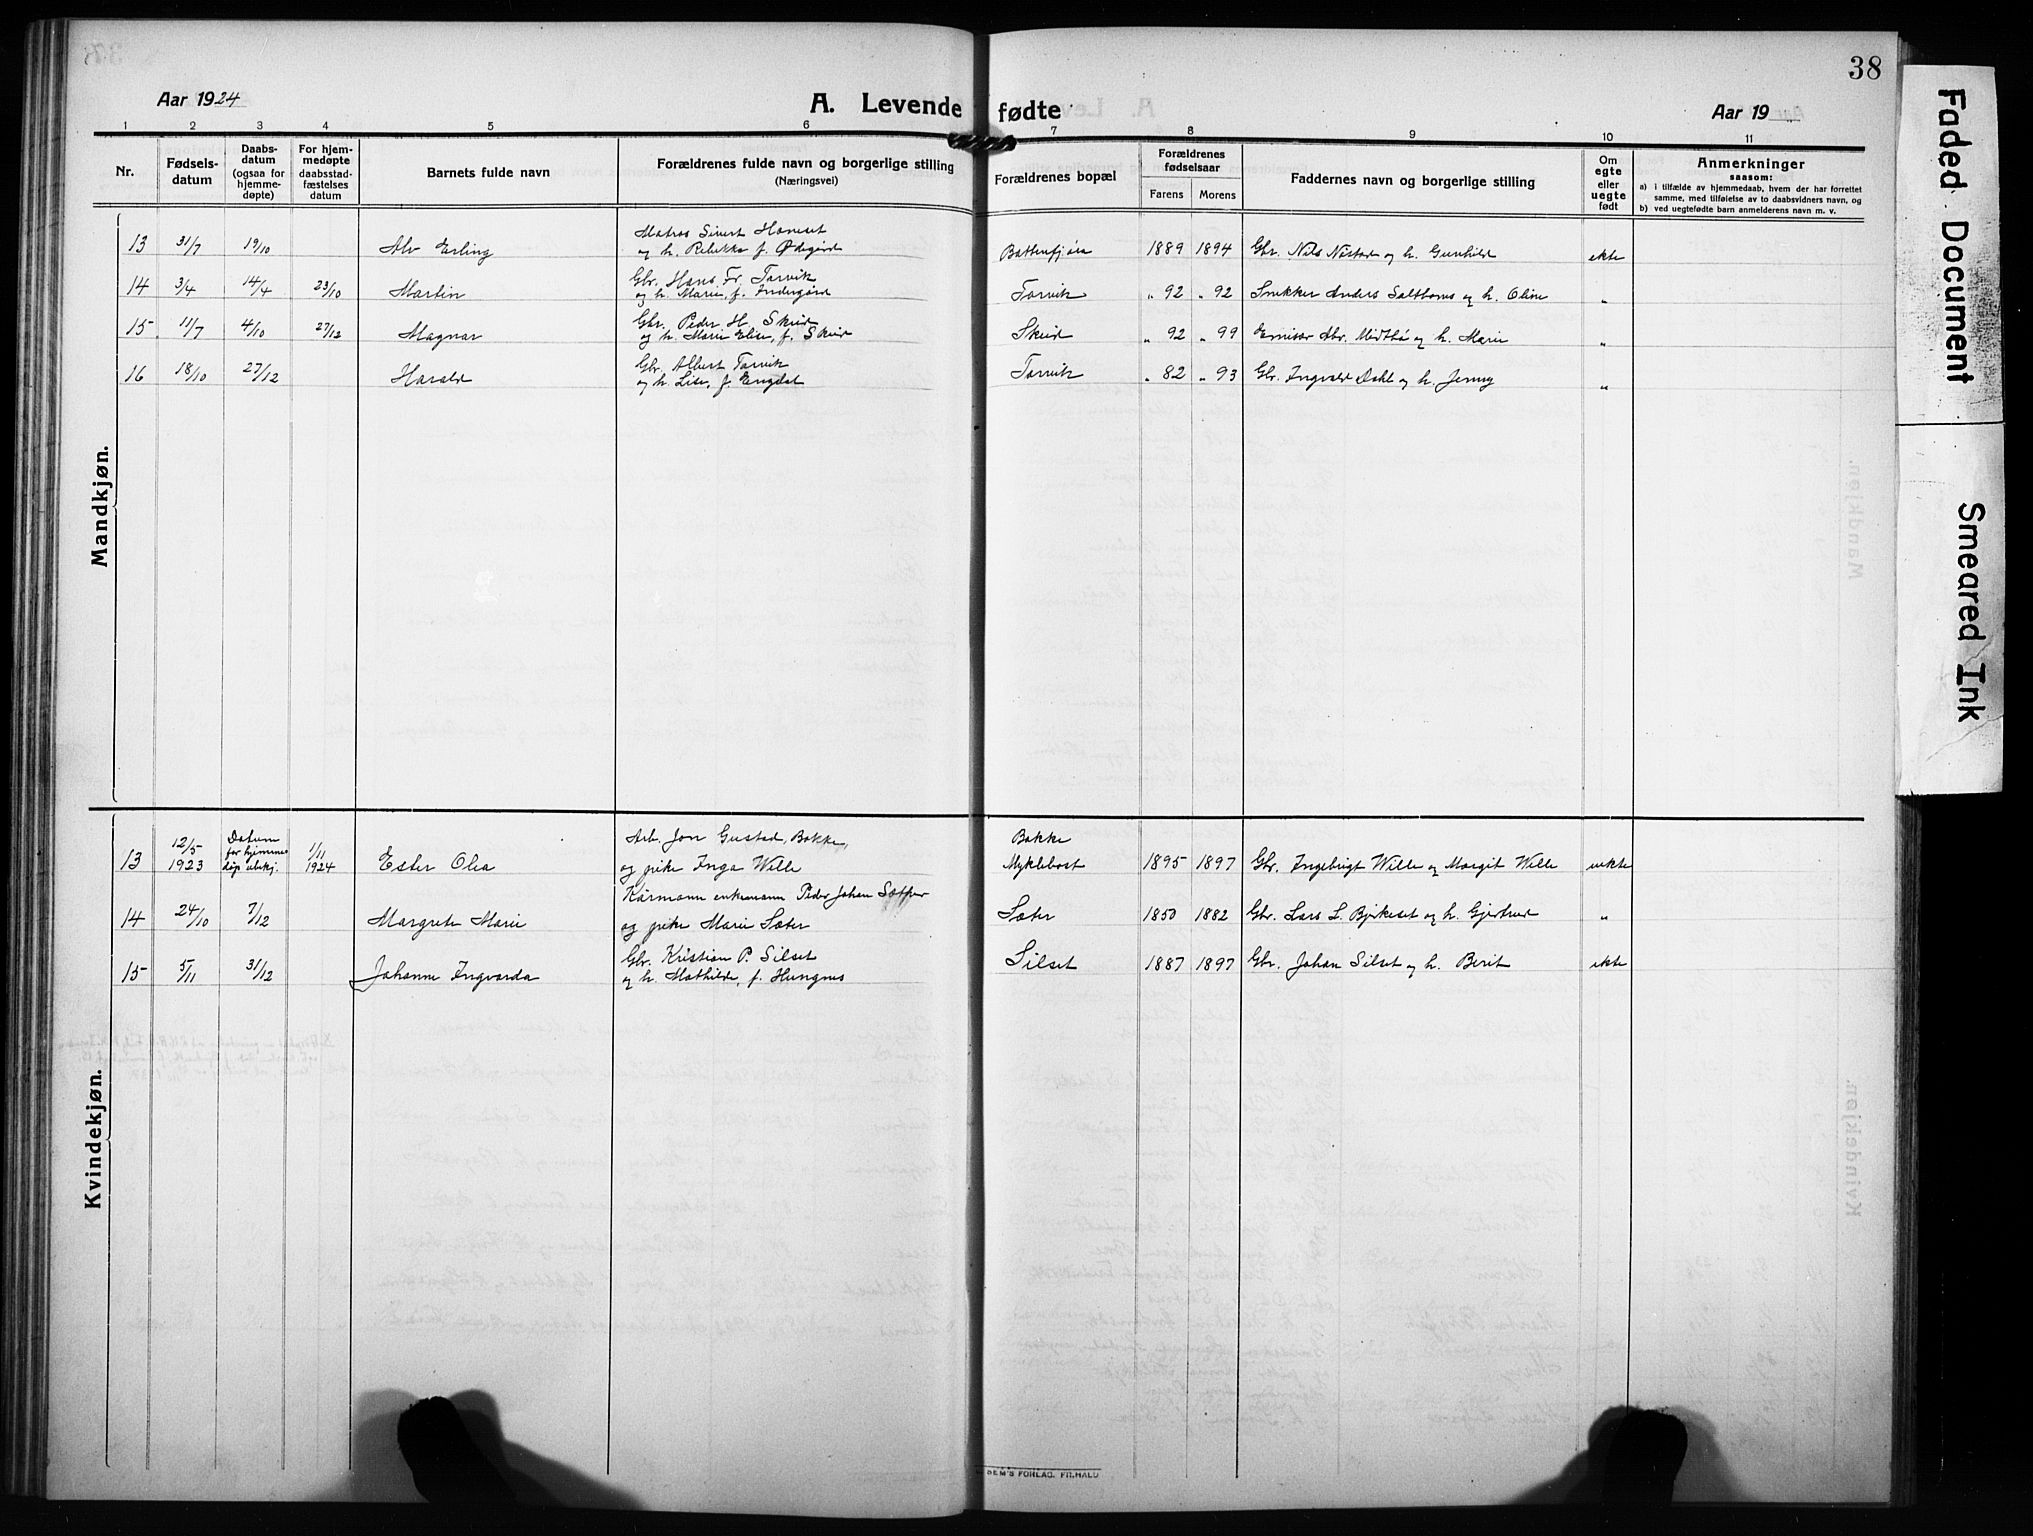 38
Aar 1924
A. Levende fødte
Aar 19
1 2 3 4 5 6 7 8 9 10 11
Nr.
Fødsels-
datum
Daabs-
datum
(ogsaa for
hjemme-
døpte)
For hjem-
medøpte
daabsstad-
fæstelses
datum
Barnets fulde navn
Forældrenes fulde navn og borgerlige stilling
(Næringsvei)
Forældrenes bopæl
Forældrenes
fødselsaar
Farens Morens
Faddernes navn og borgerlige stilling
Om
egte
eller
uegte
født
Anmerkninger
saasom:
a) i tilfælde av hjemmedaab, hvem der har forrettet
samme, med tilføielse av to daabsvidners navn, og
b) ved uegtefødte barn anmelderens navn m. v.
Mandkjøn.
Matros Sivert Haneset
13 31/7 19/10 Alv Erling og h. Rebekka f. Ødegård Battenfjøra 1889 1894 Gbr. Nils Nåstad og h. Gunhild ekte
Gbr. Hans Fr. Torvik
14 3/4 14/4 23/10 Martin og h. Marie, f. Indergård Torvik " 92 " 92 Snekker Anders Saltbones og h. Oline "
Gbr. Peder H. Skeid
15 11/7 4/10 27/12 Magnar og h. Marie Elise, f. Skeid Skeid " 92 " 99 Emissær Abr. Midtbø og h. Marie "
Gbr. Albert Torvik
16 18/10 27/12 Harald og h. Lise, f. Engdal Torvik " 82 " 93 Gbr. Ingvald Dahl og h. Jenny "
Kvindekjøn.
12/5 Datum 1/11 Arb. Jon Gustad, Bakke, Bakke
for hjemme
13 1923 døp ubekj. 1924 Ester Olea og pike Inga Wille Myklebost 1895 1897 Gbr. Ingebrigt Wille og Margit Wille uekte
Kårmann enkemann Peder Johan Sæther
14 24/10 7/12 Margrete Marie og pike Marie Sæter Sæter 1850 1882 Gbr. Lars L. Bjerkeset og h. Gjertrud "
Gbr. Kristian P. Silset
15 5/11 31/12 Johanne Ingvarda og h. Mathilde, f. Hungnes Silset 1887 1897 Gbr. Johan Silset og h. Berit ekte
SEM'S FORLAG, FR.HALD
Faded Document
Smeared Ink